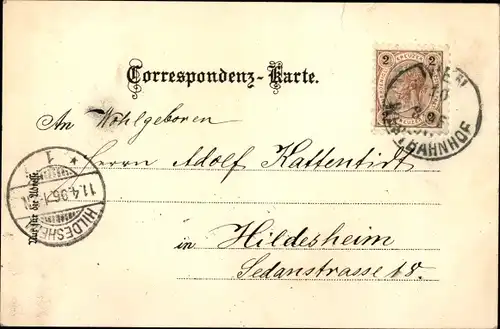 Correspondenz-Karte.
2 KREUZER 2
WIEN
BAHNHOF
An Wohlgeboren
Herrn Adolf Kattentidt
in Hildesheim
Sedanstrasse 18.
Nur für die Adresse.
* 1
11.4.96.
HILDESHEIM